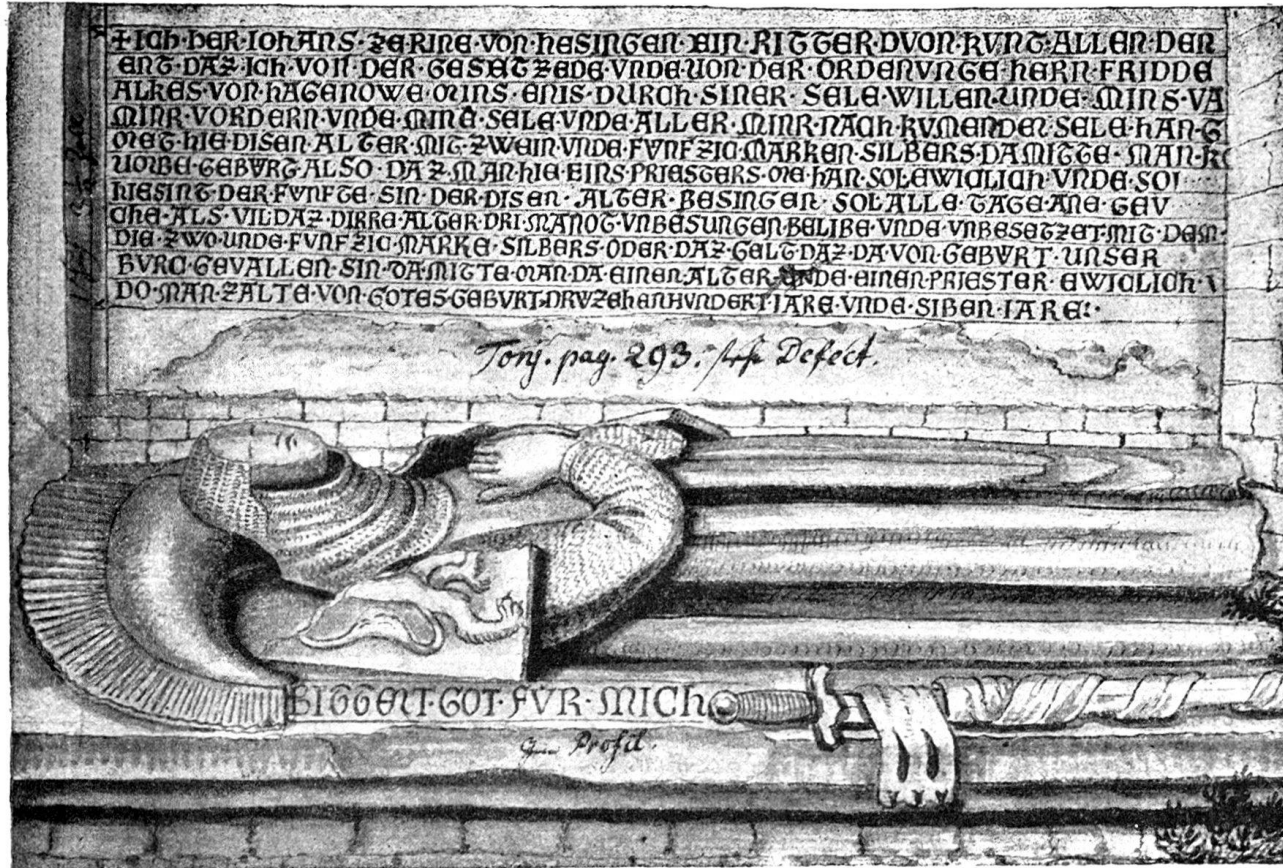 ✝ICH·HER·IOHANS·ZERINE·VON·HESINGEN·EIN·RITTER·DVON·KVNT·ALLEN·DEN
ENT·DAZ·ICH·VON·DER·GESETZEDE·VNDE·UON·DER·ORDENVNGE·HERN·FRIDDE
ALKES·VON·HAGENOWE·MINS·ENIS·DURCH·SINER·SELE·WILLEN·UNDE·MINS·VA
MINR·VORDERN·VNDE·MINE·SELE·VNDE·ALLER·MINR·NACH·KVMENDEN·SELE·HAN·G
MET·HIE·DISEN·ALTER·MIT·ZWEIN·VNDE·FVNFZIC·MARKEN·SILBERS·DAMITTE·MAN·K
UMBE·GEBVRT·ALSO·DAZ·MAN·HIE·EINS·PRIESTERS·ME·HAN·SOL·EWICLICH·VNDE·SOL
HIE·SINT·DER·FVNFTE·SIN·DER·DISEN·ALTER·BESINGEN·SOL·ALLE·TAGE·ANE·GEV
CHE·ALS·VIL·DAZ·DIRRE·ALTER·DRI·MANOT·VNBESUNGEN·BELIBE·VNDE·VNBESETZET·MIT·DEM·
DIE·ZWO·UNDE·FVNFZIC·MARKE·SILBERS·ODER·DAZ·GELT·DAZ·DA·VON·GEBVRT·UNSER
BVRC·GEVALLEN·SIN·DAMITTE·MAN·DA·EINEN·ALTER·VNDE·EINEN·PRIESTER·EWICLICH·
DO·MAN·ZALTE·VON·GOTES·GEBVRT·DRVZEHENHVNDERT·IARE·VNDE·SIBEN·IARE:·
pag. 293. Defect.
BITTENT·GOT·FVR·MICH
Profil.